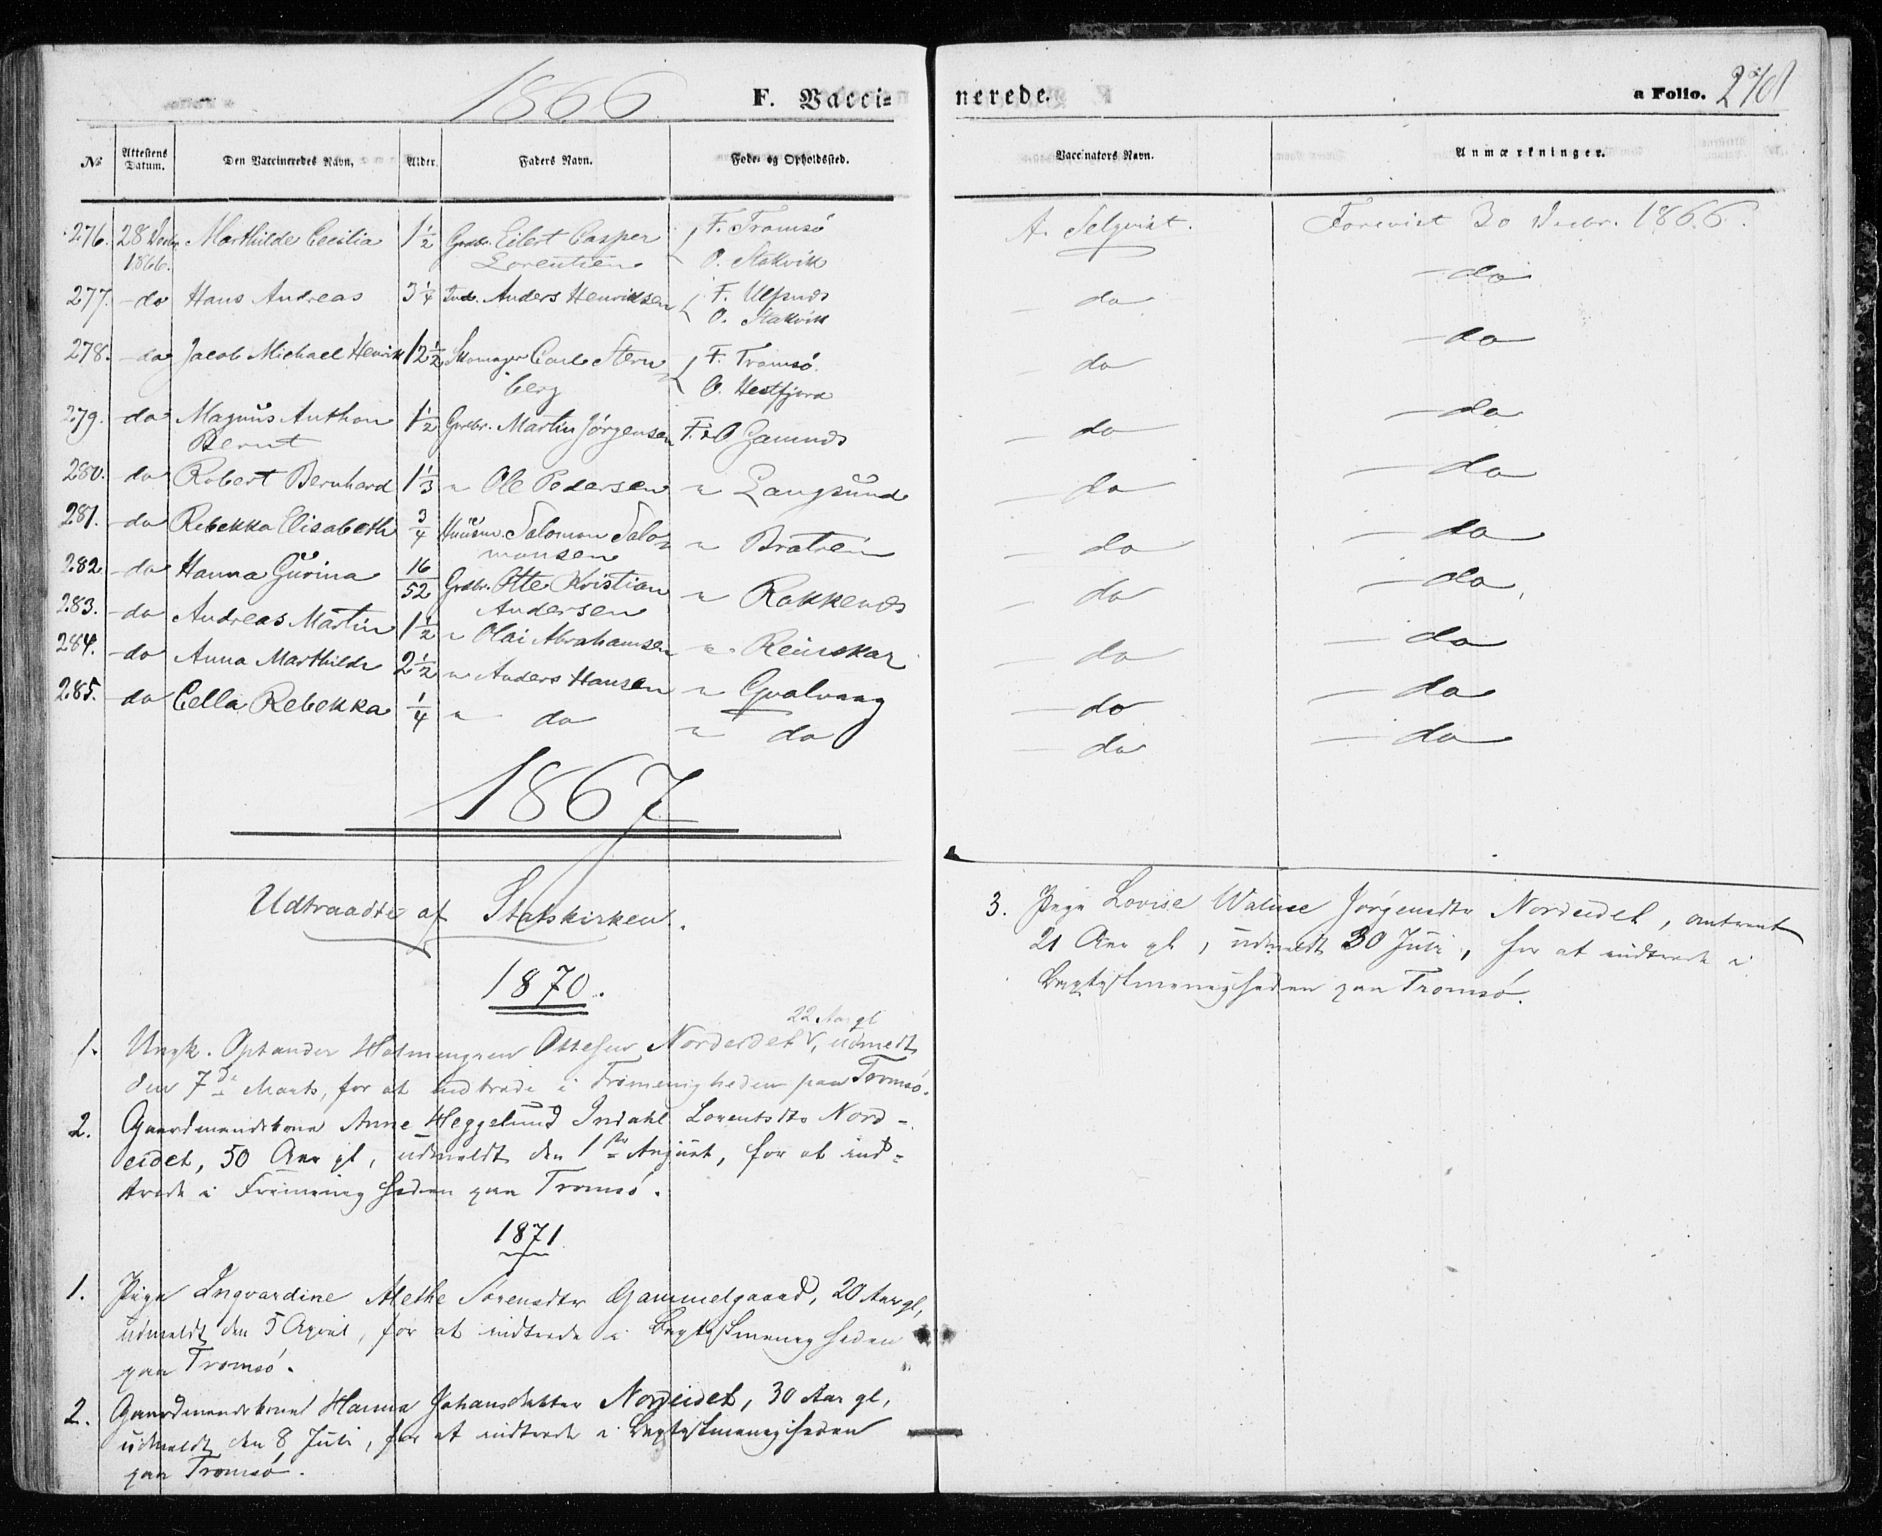 1866 F. Vacci= nerede. a Folio. 2
No Attestens Datum. Den Vaccineredes Navn. Alder. Faders Navn. Føde- og Opholdssted. Vaccinators Navn. Anmærkninger.
276. 28 Decbr 1866. Marthilde Cecilia 1½ Grdbr. Eilert Casper Lorentsen F. Tromsø O. Stakvik A. Selqvist. Forevist 30 Decbr. 1866.
277. do Hans Andreas 3¼ Ind. Anders Henriksen F. Ulfsnes O. Stakvik do do
278. do Jacob Michael Henrik 12½ Skomager Carl Stern berg F. Tromsø. O. Hestfjord do do
279. do Magnus Anthon Bernt 1½ Grdbr. Martin Jørgensen F. & O Gamnæs do do
280. do Robert Bernhard 1⅓ " Ole Pedersen " Langsund do do
281. do Rebekka Elisabeth ¾ Huusm. Salomon Salo= monsen " Bratrein do do
282. do Hanna Gurina 16/52 Grdbr. Otte Kristian Andersen " Rakkenæs do do
283. do Andreas Martin 1½ " Olai Abrahamsen " Reinskar do do
284. do Anna Marthilde 2½ " Anders Hansen " Gvalvaag do do
285. do Cella Rebekka ¼ " do " do do do
1867
Udtraadte af Statskirken.
1870.
22 Aar gl
1. Ungk. Holmengren Ottesen Nordeidet V, udmeldt
den 7de Marts, for at indtræde i Frimenigheden paa Tromsø.
2. Gaardmandskone Anne Heggelund Indahl Lorentsdtr Nord-
eidet, 50 Aar gl, udmeldt den 1ste August, for at ind=
træde i Frimenigheden paa Tromsø.
1871
1. Pige Ingvardine Alethe Sørensdtr Gammelgaard, 20 Aar gl,
udmeldt den 5 April, for at indtræde i Baptistmenigheden
paa Tromsø.
2. Gaardmandskone Hanna Johansdatter Nordeidet, 30 Aar gl,
udmeldt den 8 Juli, for at indtræde i Baptistmenigheden
paa Tromsø.
3. Pige Lovise Jørgensdtr Nordeidet, omtrent
21 Aar gl, udmeldt 30 Juli, for at indtræde i
Baptistmenigheden paa Tromsø.